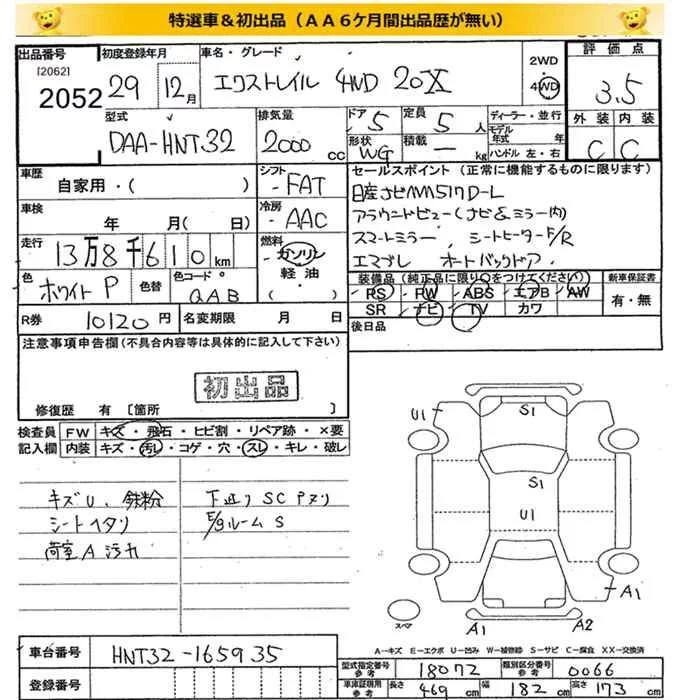 特選車＆初出品（ＡＡ６ケ月間出品歴が無い）
出品番号 初度登録年月 車名・グレード 2WD 評価点
[2062] 2052 29 12月 エクストレイル 4WD 20X 4WD 3.5
型式 排気量 ドア 5 定員 5人 ディーラー・並行 外装 内装
DAA-HNT32 2000cc 形状 WG 積載 ー kg モデル年式 年 C C
ハンドル 左・右
車歴 シフト セールスポイント（正常に機能するものに限ります）
自家用・（ ） FAT 日産ナビMM517D-L
車検 冷房 アラウンドビュー（ナビ&ミラー内）
年 月（ 日） AAC スマートミラー、シートヒーターF/R
走行 燃料 エマブレ オートバックドア
13万8千610km ガソリン
軽油
（ ）
色 色替 色コード 装備品（純正品に限り○をつけてください） 新車保証書
ホワイトP QAB PS・PW・ABS・エアB・AW 有・無
SR ナビ TV カワ
R券 10120円 名変期限 月 日 後日品
注意事項申告欄（不具合内容等は具体的に記入して下さい）
初出品
修復歴 有〔箇所 〕
検査員 FW キズ・飛石・ヒビ割・リペア跡・×要
記入欄 内装 キズ・汚レ・コゲ・穴・スレ・キレ・破レ
キズU、鉄粉 下廻りSCPヌリ
シートヘタリ E/gルームS
荷室A汚れ
U1 S1
S1
U1
A1
A1 A2
スペア
A－キズ E－エクボ U－凹み W－補修跡 S－サビ C－腐食 XX－交換済
車台番号 HNT32-165935
登録番号
型式指定番号 参考 18072 類別区分番号 参考 0066
車庫証明用 参考 長さ 469cm 幅 182cm 高さ 173cm